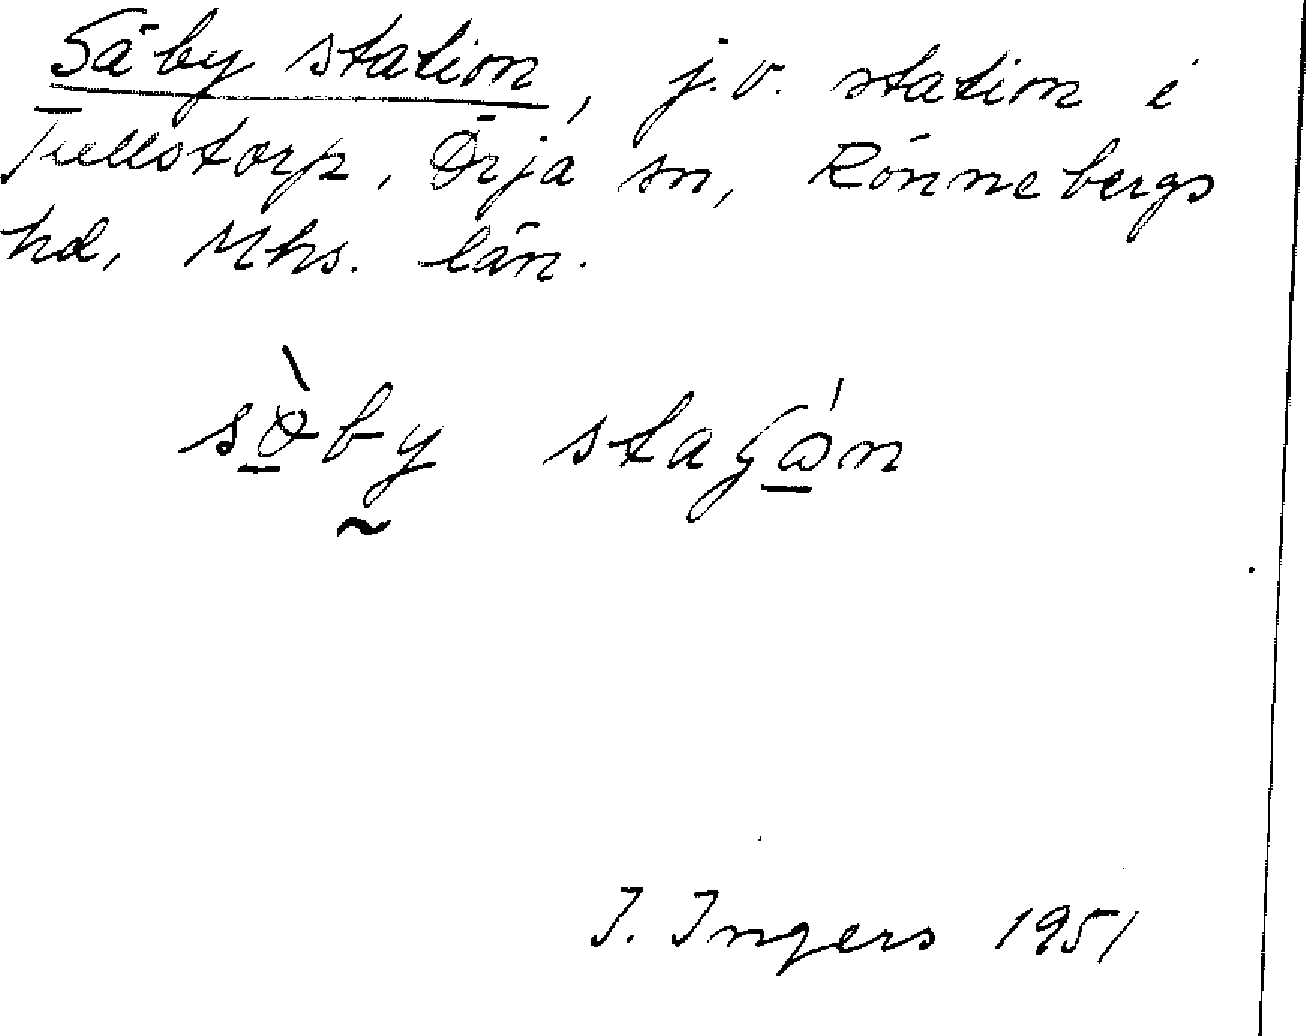 Säby station, j.v. station i
Tullstorp, Örja sn, Rönnebergs
hd, Mhs. län.
I. Ingers 1951